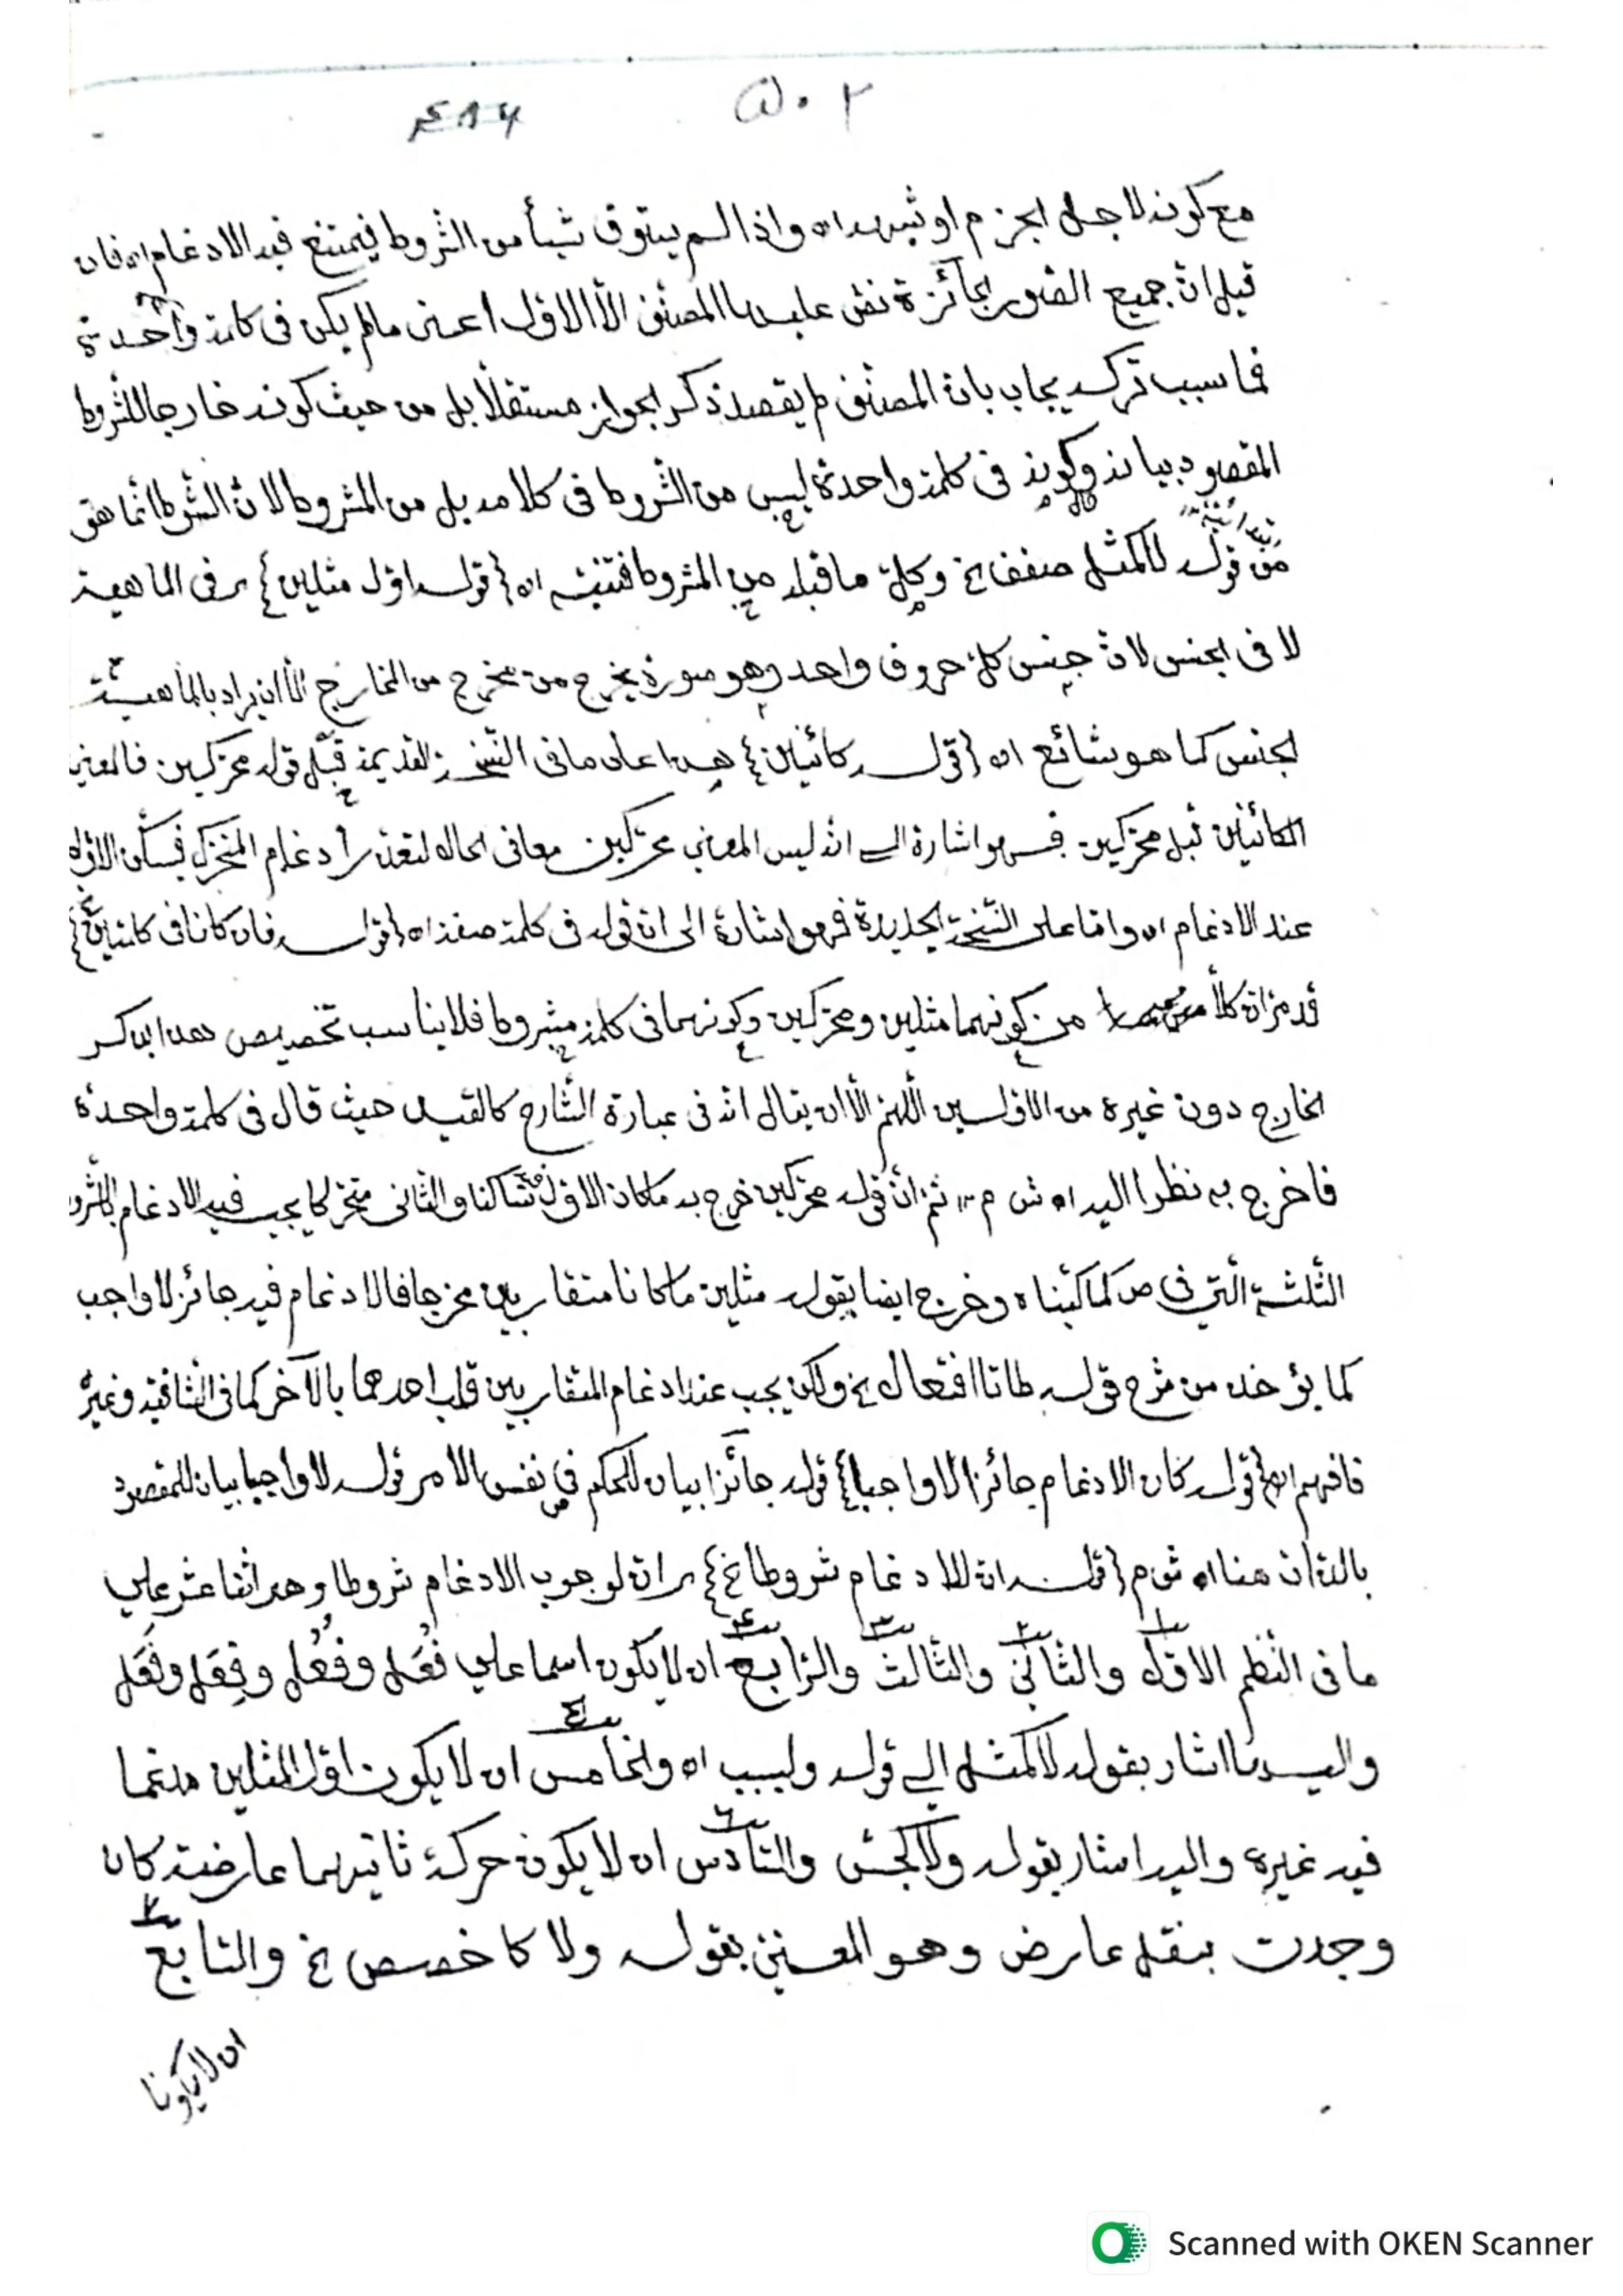 ٥٠٢ ٤٨٦
مع كونه لاجل الجزم او شبهه اه واذا لم يتوف شيأ من الشروط فيمتنع فيه الادغام اه فان
قيل ان جميع الصور الجائزة نص عليها المصنف الا الاول اعنى مالم يكن فى كلمة واحدة
فما سبب تركه يجاب بان المصنف لم يقصد ذكر الجواز مستقلا بل من حيث كونه خارجا للشروط
المقصود بيانه وكونه فى كلمة واحدة ليس من الشروط فى كلامه بل من المشروط لان الشرط انما هو
من قوله لا كمثل صفف الخ وكل ما قبله من المشروط فتنبه اه {قوله اول مثلين} فى الماهية
لا فى الجنس لان جنس كل حروف واحد وهو صورة يخرج من مخرج من المخارج الا ان يراد بالماهية
الجنس كما هو شائع اه {قوله كائنين} هذا على ما فى النسخة القديمة قبل قوله محركين فالمعنى
الكائنين قبل محركين فهو اشارة الى انه ليس المعنى محركين معا فى الحال لتعذر ادغام المتحرك فيسكن الاول
عند الادغام اه واما على النسخة الجديدة فهو اشارة الى ان قوله فى كلمة صفة اه {قوله فان كانا فى كلمتين}
قد مر ان كلا من كونهما مثلين ومحركين وكونهما فى كلمة مشروط فلا يناسب تخصيص هذا بذكر
الخارج دون غيره من الاولين اللهم الا ان يقال انه فى عبارة الشارح كالقيد حيث قال فى كلمة واحدة
فاخرج به نظرا اليه اه ش م ثم ان قوله محركين خرج به ما كان الاول ساكنا والثانى متحركا يجب فيه الادغام بالشروط
الثلثة التى فى ص كما كتبناه وخرج ايضا بقوله مثلين ما كانا متقاربين مخرجا فالادغام فيه جائز لا واجب
كما يؤخذ من شرح قوله طا تا افتعال الخ ولكن يجب عند ادغام المتقاربين قلب احدهما بالآخر كما فى الشافية وغيره
فافهم اه {قوله كان الادغام جائزا لا واجبا} قوله جائزا بيان للحكم فى نفس الامر قوله لا واجبا بيان للمقصود
بالذات هنا اه ش م {قوله ان للادغام شروطا الخ} ان لوجوب الادغام شروطا وهى اثنا عشر على
ما فى النظم الاول والثانى والثالث والرابع ان لا يكون اسما على فُعَل وفُعُل وفِعَل وفَعَل
واليها اشار بقوله لا كمثل الى قوله ولبب اه والخامس ان لا يكون اول المثلين مدغما
فيه غيره واليه اشار بقوله ولا كجسّ والسادس ان لا يكون حركة ثانيهما عارضة كان
وجدت بنقل عارض وهو المعنىّ بقوله ولا كاخصص الخ والسابع
ان لا يكونا
Scanned with OKEN Scanner